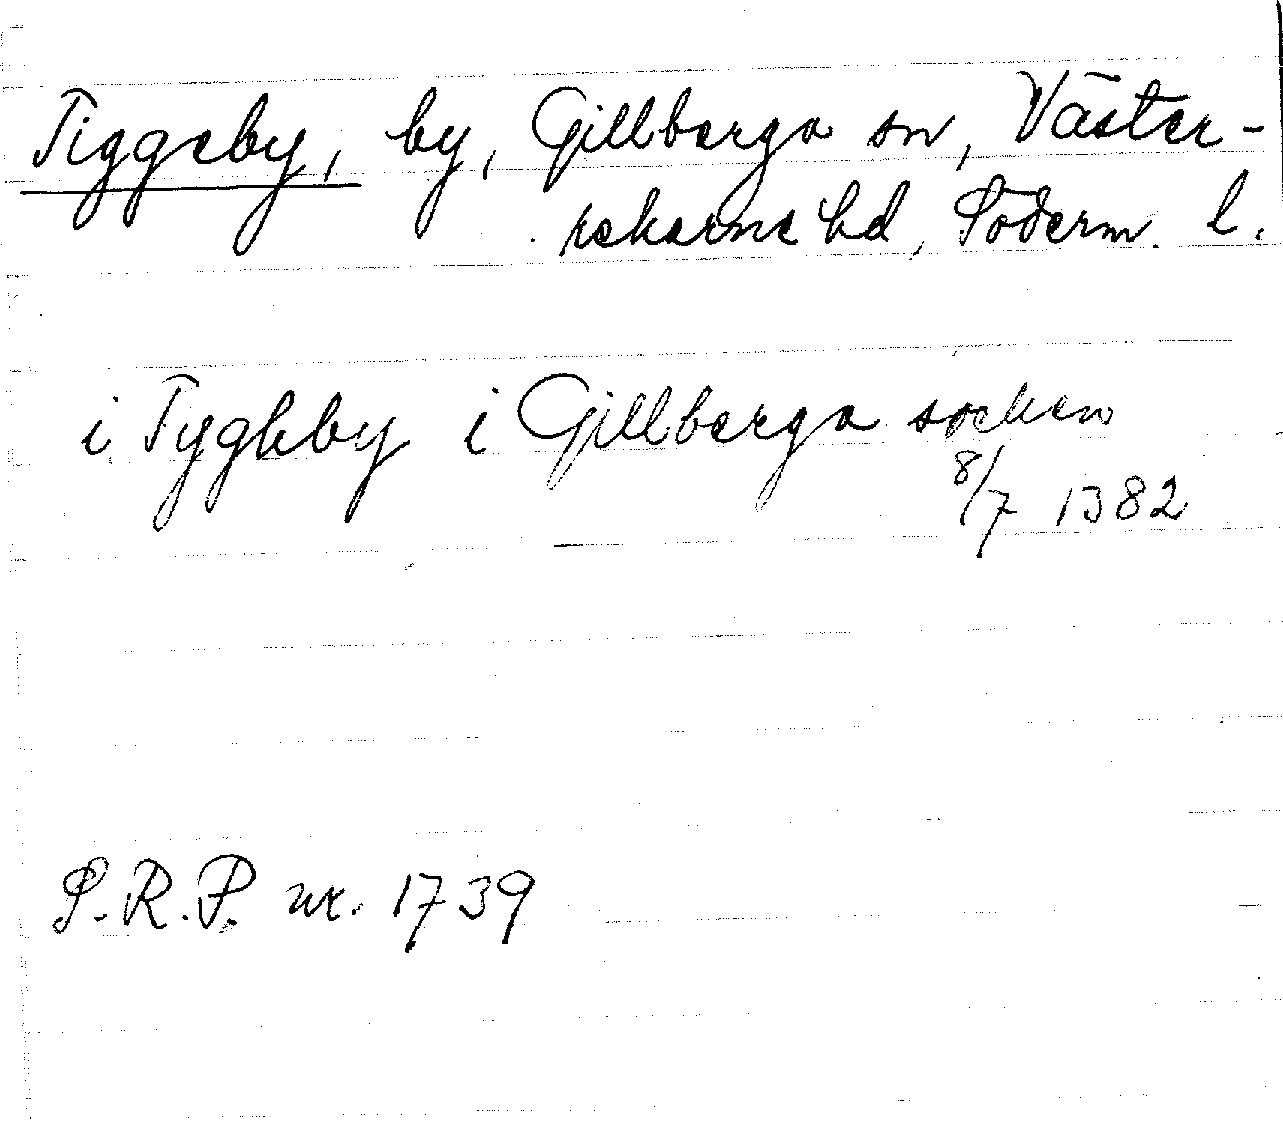 Tiggeby, by, Gillberga sn, Väster-
rekarne hd, Söderm. l.
i Tyghby i Gillberga socken
8/7 1382
S.R.P. nr. 1739